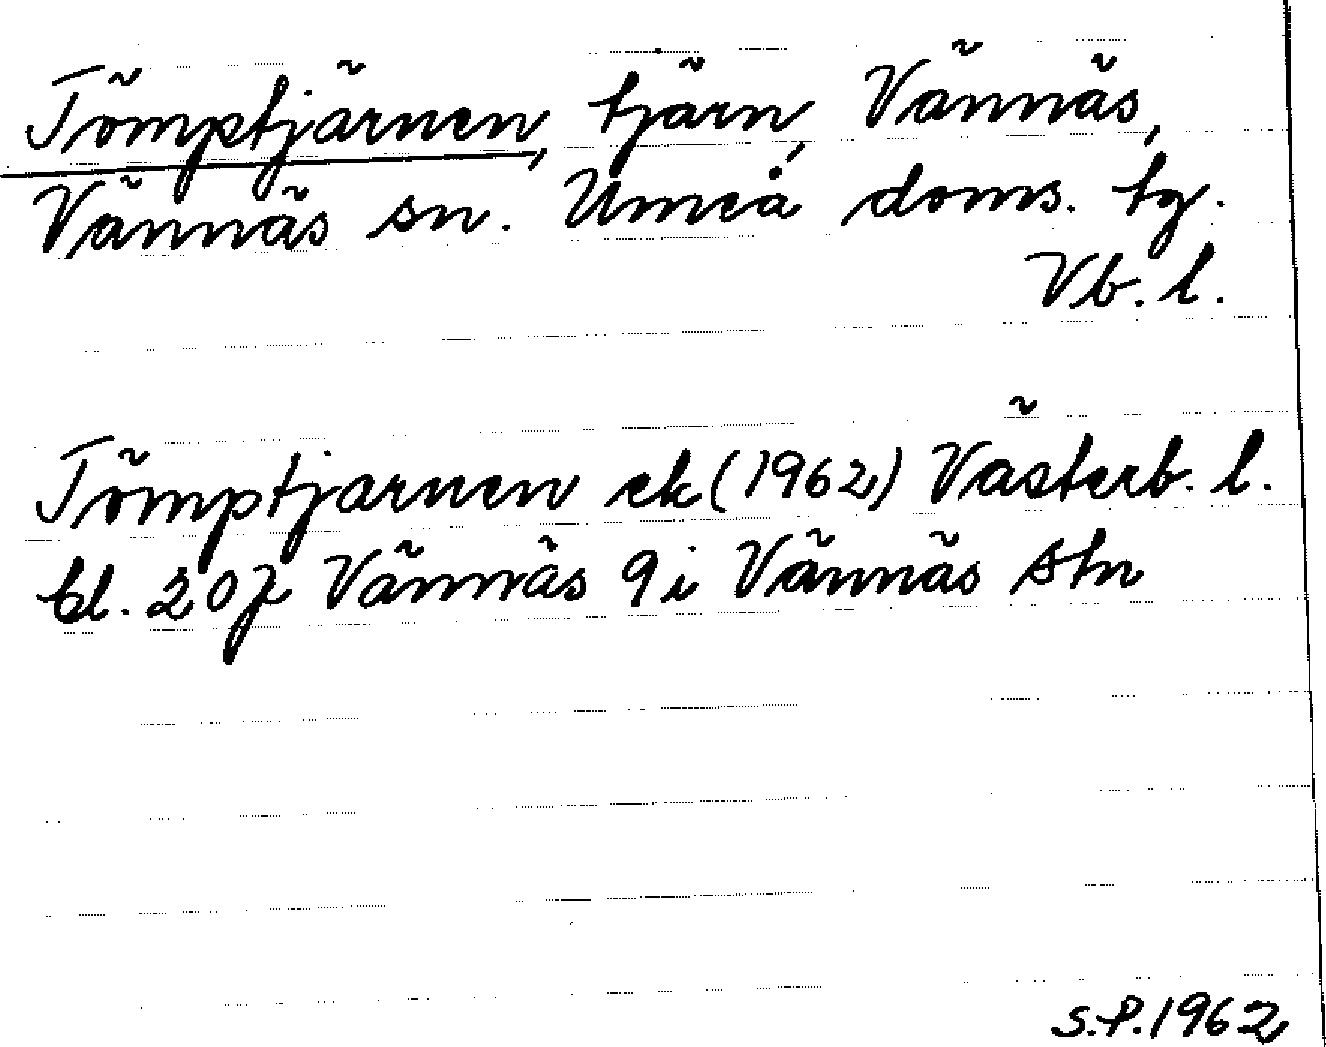 Tömptjärnen, tjärn, Vännäs,
Vännäs sn. Umeå doms. tg.
Vb. l.
Tömptjarnen ek (1962) Västerb. l.
bl. 20J Vännäs 9i Vännäs Stn
S.P.1962